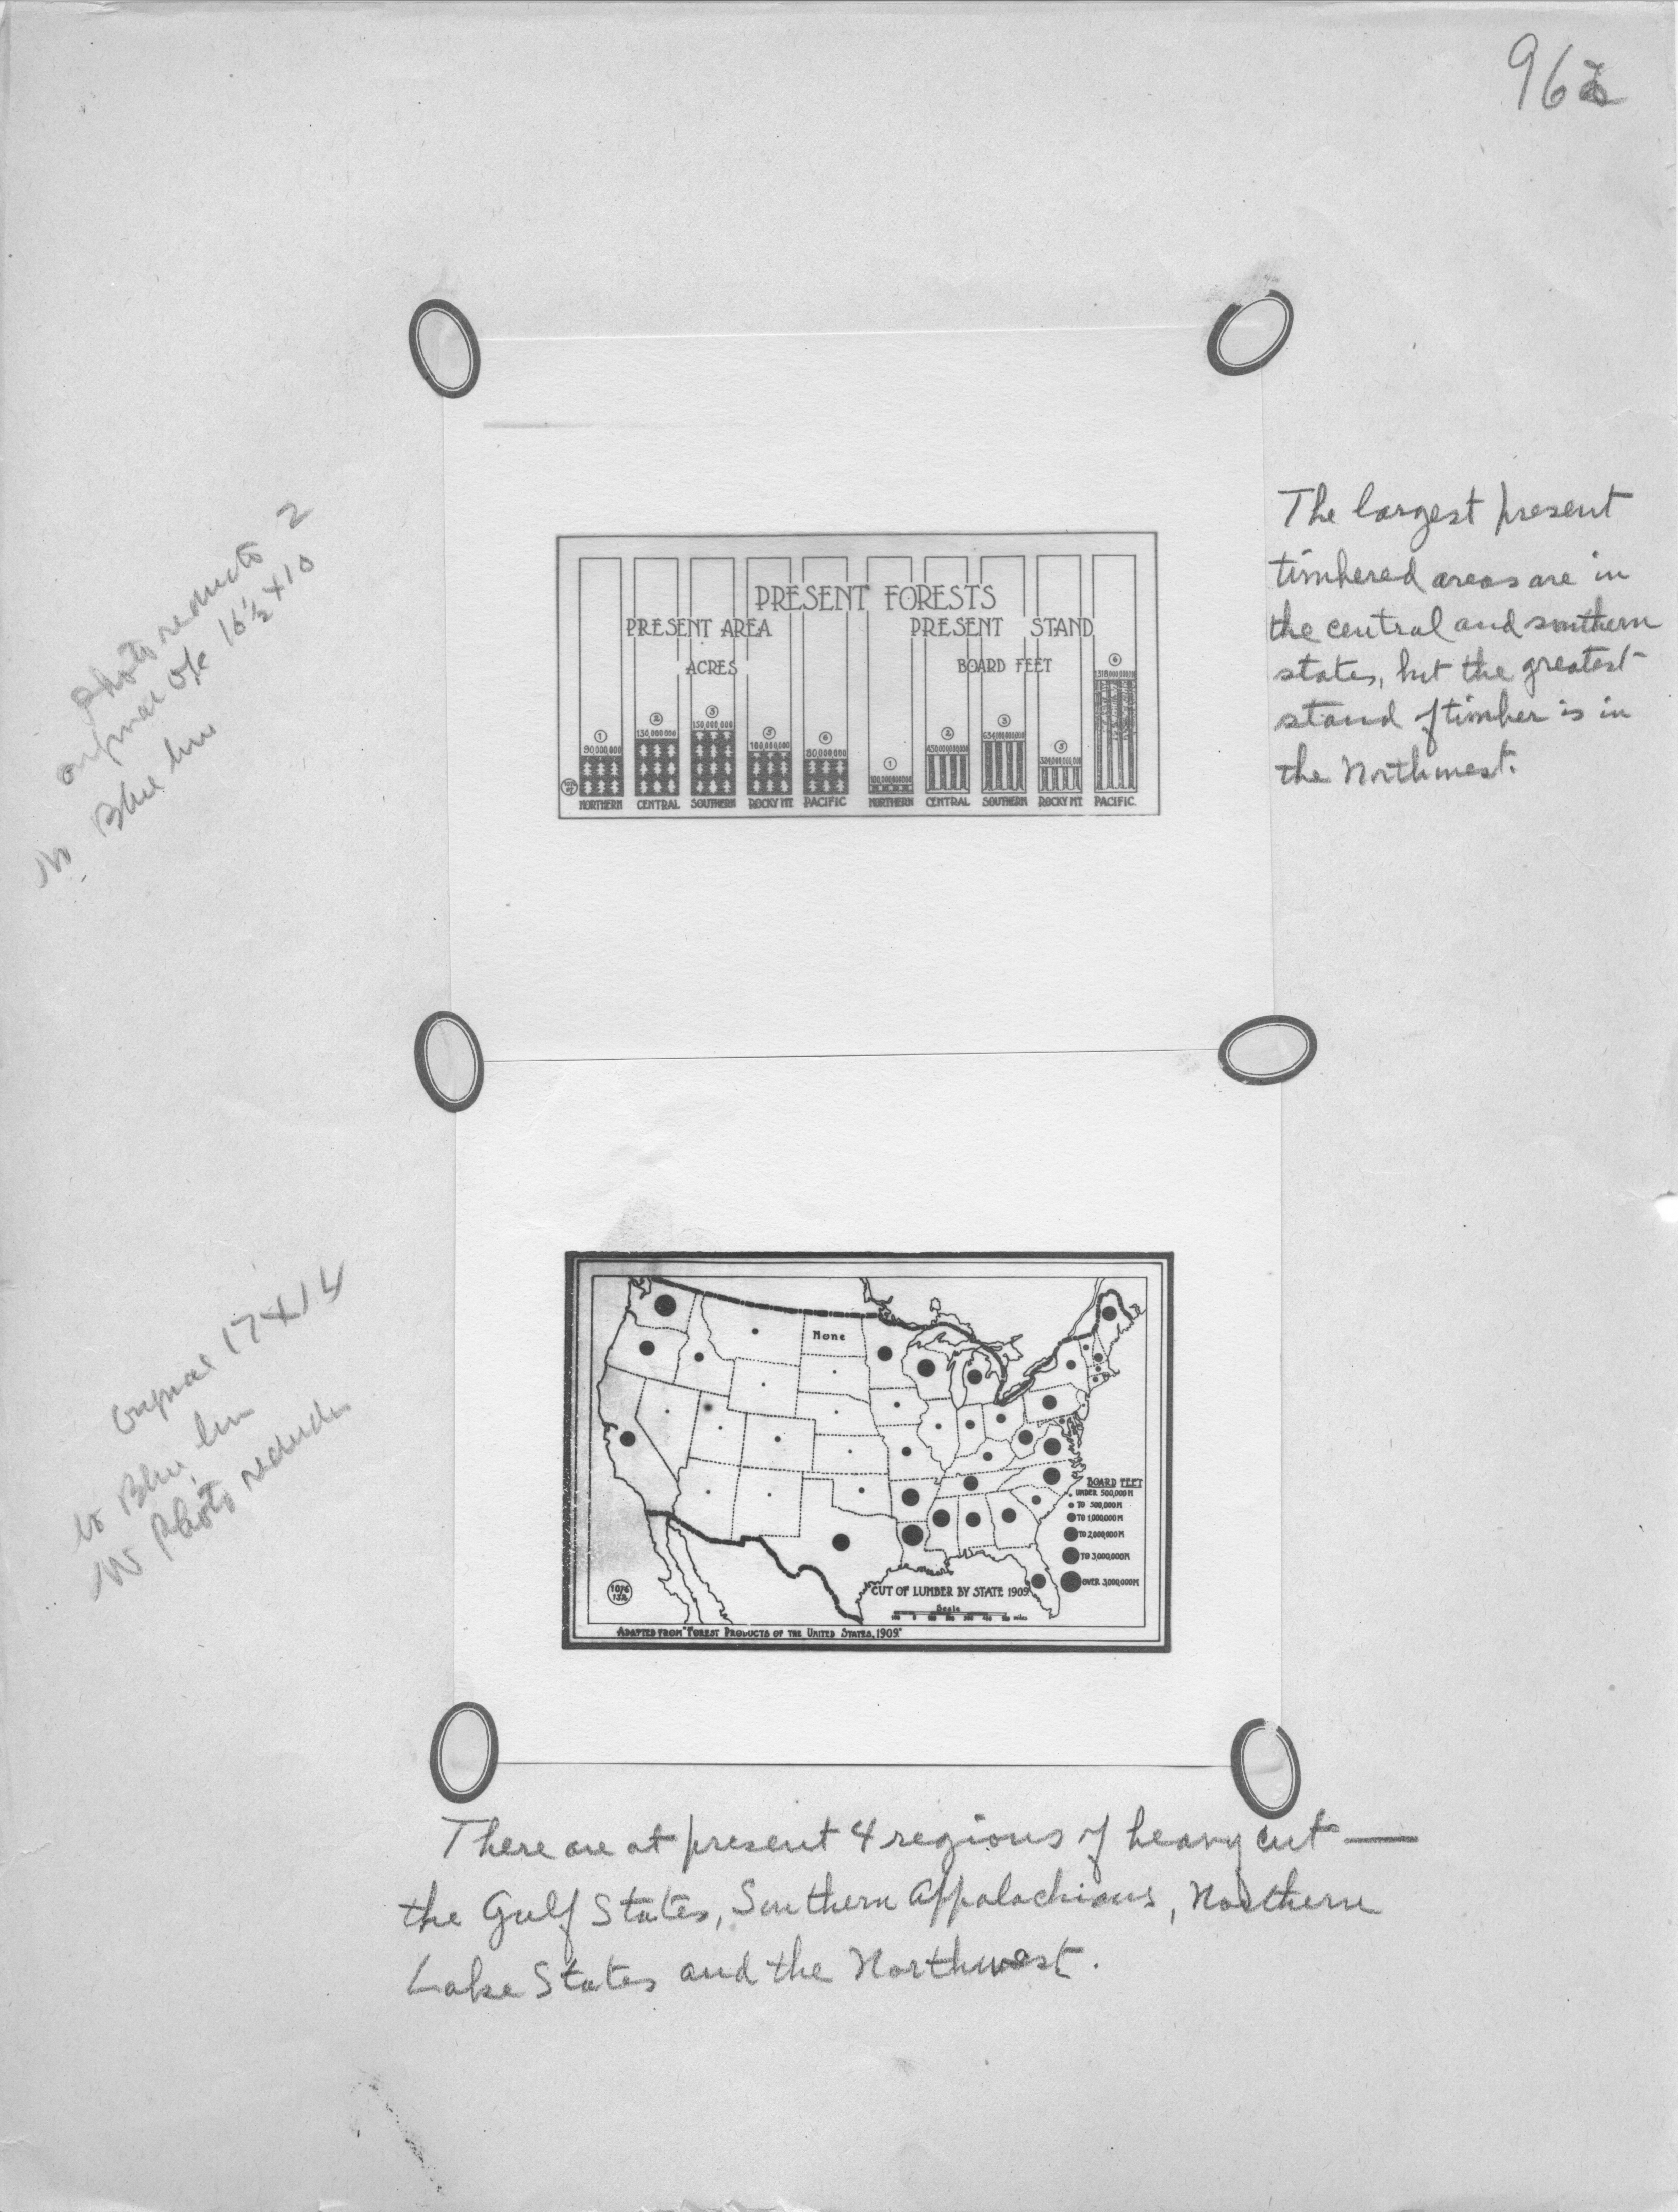 96
PRESENT FORESTS
PRESENT AREA
ACRES
PRESENT STAND
BOARD FEET
1
90,000,000
NORTHERN
2
130,000,000
CENTRAL
3
150,000,000
SOUTHERN
100,000,000
ROCKY MT.
6
80,000,000
PACIFIC
1
NORTHERN
2
CENTRAL
3
SOUTHERN
ROCKY MT
6
PACIFIC.
The largest present
timbered areas are in
the central and southern
states, but the greatest
stand of timber is in
the Northwest.
Photo reducto 2
original ofc 16½ x 10
No Blue line
None
BOARD FEET
UNDER 500,000 M
TO 500,000 M
TO 1,000,000 M
TO 2,000,000 M
TO 3,000,000 M
OVER 3,000,000 M
CUT OF LUMBER BY STATE 1909
Scale
1076
132
ADAPTED FROM "FOREST PRODUCTS OF THE UNITED STATES, 1909."
17x14
Blue line
Photo
There are at present 4 regions of heavy cut —
the Gulf States, Southern Appalachians, Northern
Lake States and the Northwest.